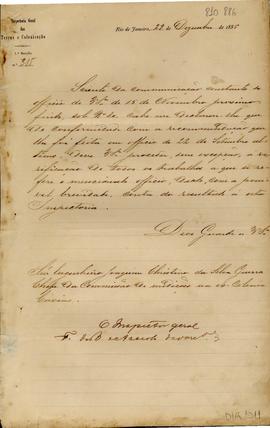 Inspectoria Geral
das
Terras e Colonisação
Rio de Janeiro, 22 de Dezembro de 1885
Sciente da communicação constante do
officio de V.S.ª de 18 de Novembro proximo
findo, sob N.º cabe-me declarar-lhe que
de conformidade com a recommendação que
lhe foi feita em officio de 24 de Setembro
ultimo, deve V.S.ª proceder, sem excepção, a
de todos os trabalhos a que se re-
fere o mencionado officio, dando, com a possi-
vel brevidade, conta do resultado a esta
Inspectoria.
Deos Guarde a V.S.ª
Snr. Engenheiro Joaquim Christino da Silva
Chefe da Commissão de medições na ex-Colonia
Caxias
O Inspector geral
F. de B.